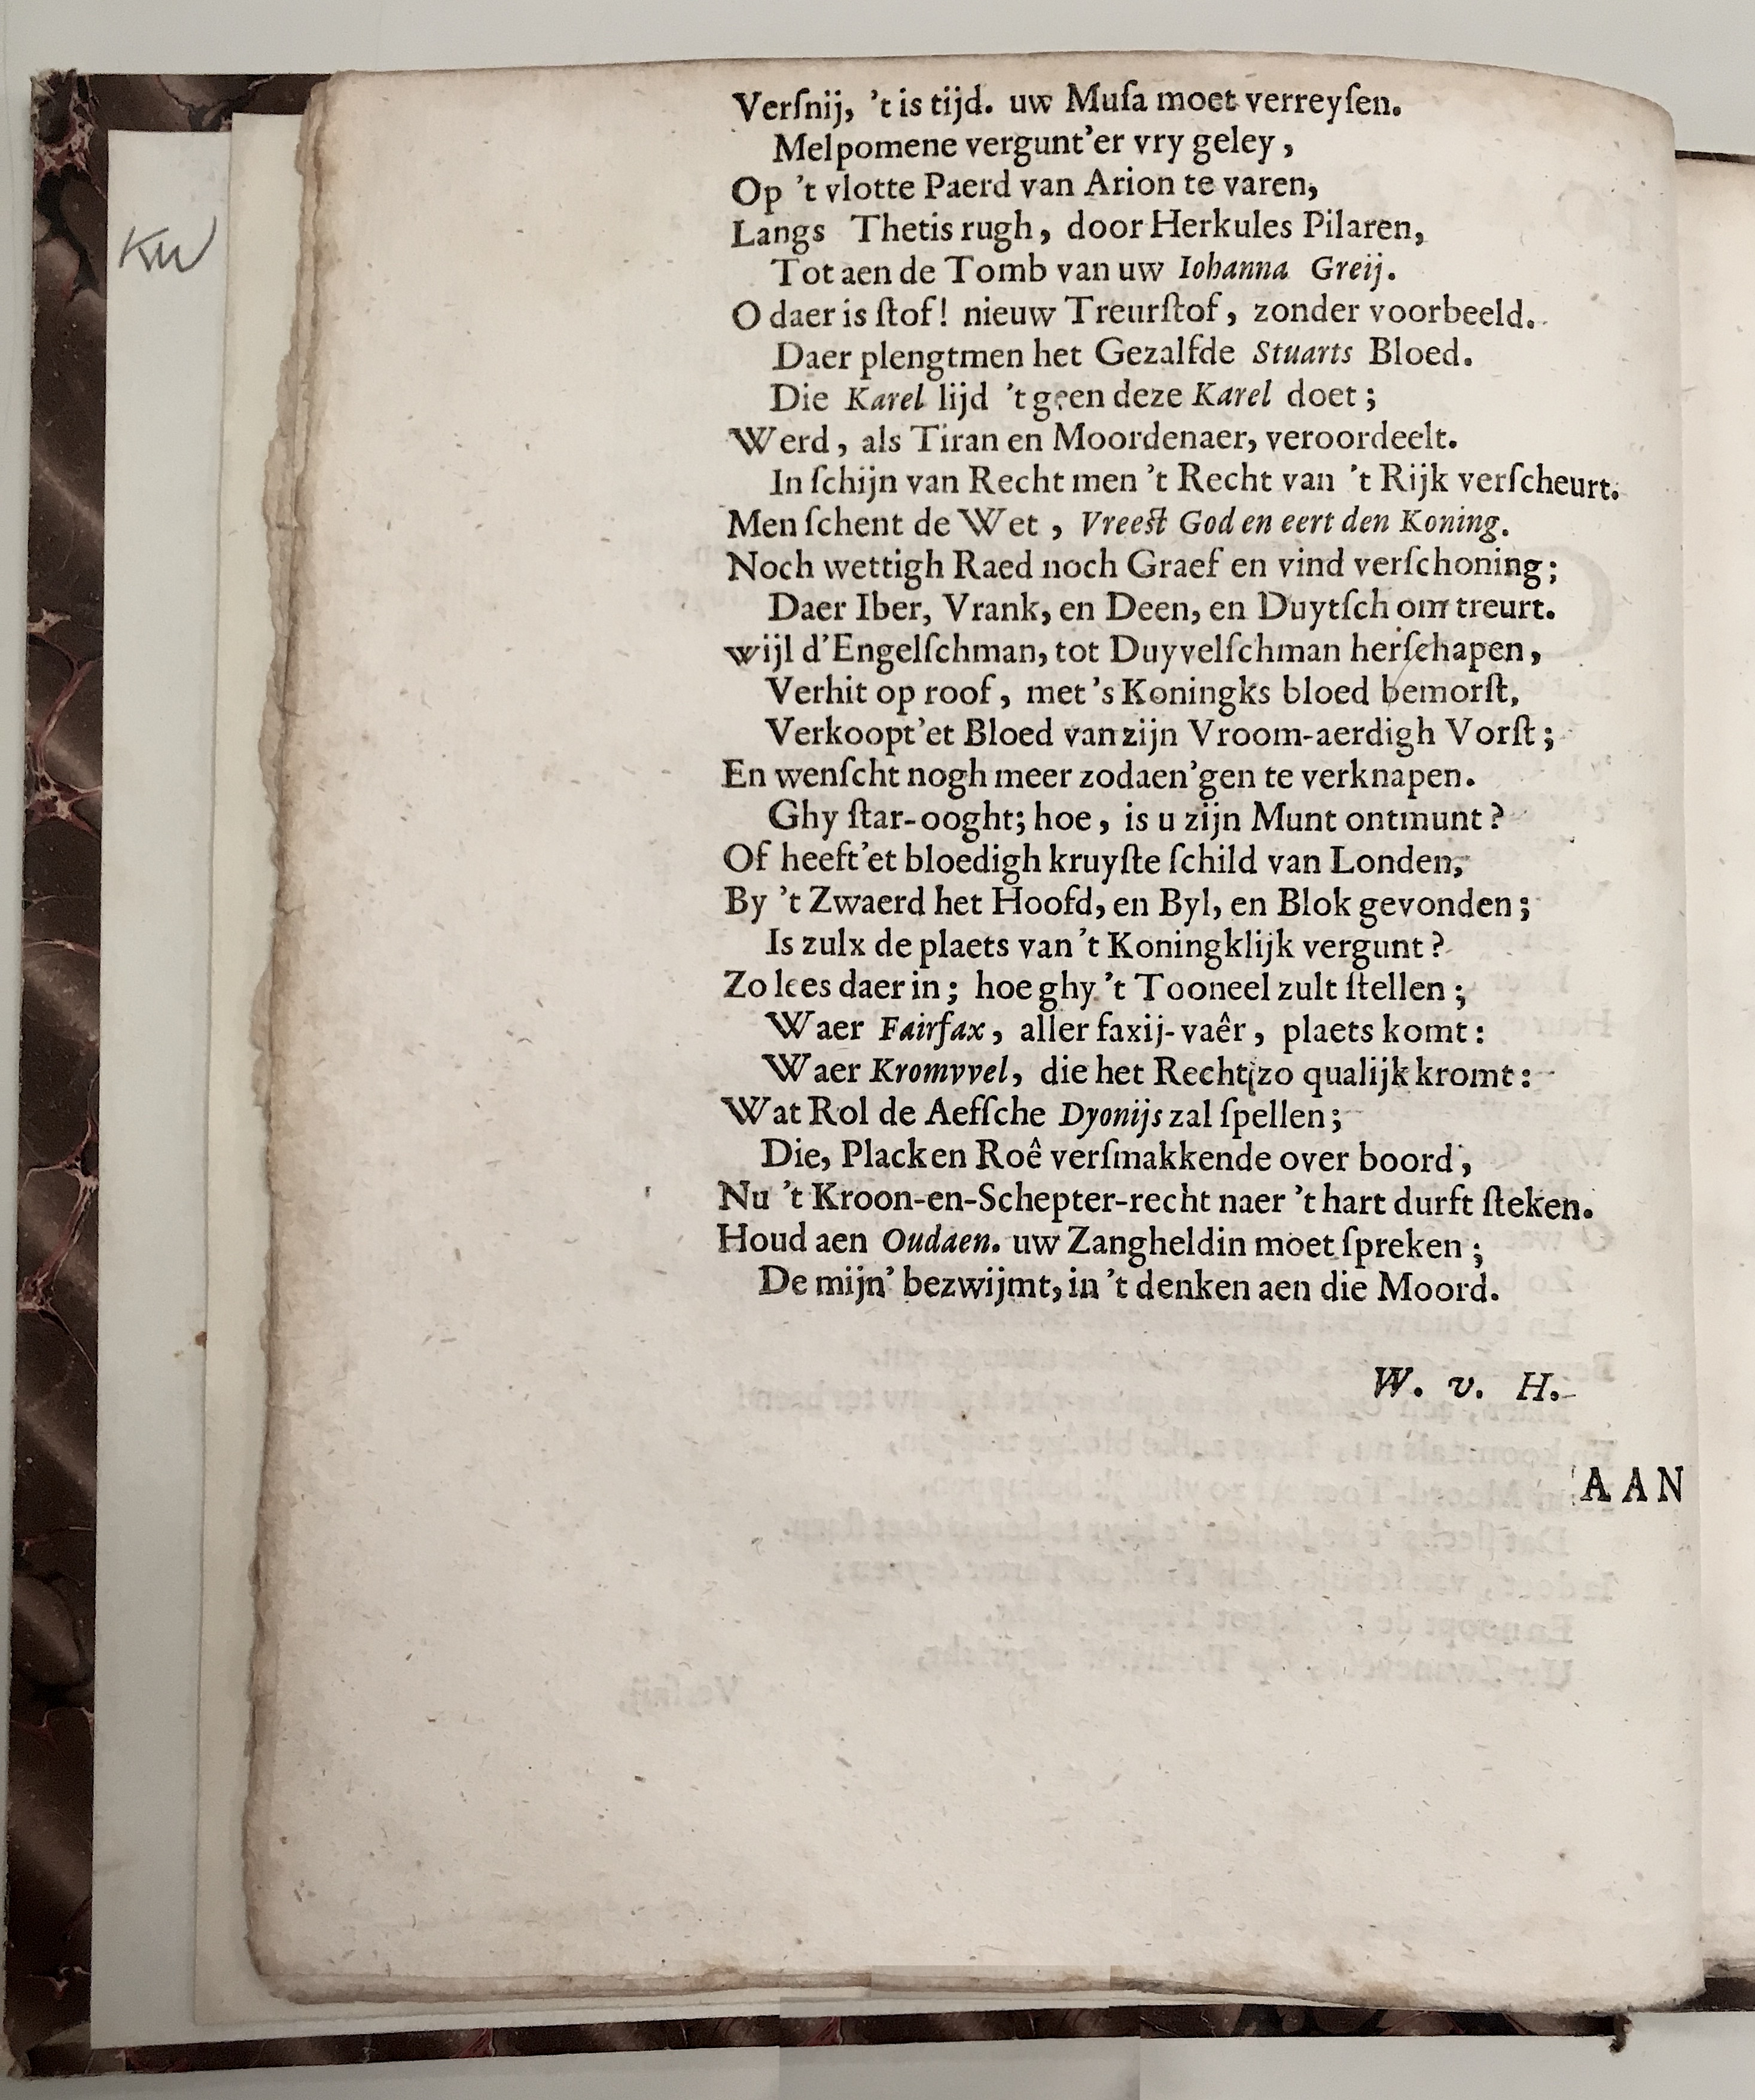 Verſnij, 't is tijd. uw Muſa moet verreyſen.
Melpomene vergunt'er vry geley,
Op 't vlotte Paerd van Arion te varen,
Langs Thetis rugh, door Herkules Pilaren,
Tot aen de Tomb van uw Iohanna Greij.
O daer is ſtof! nieuw Treurſtof, zonder voorbeeld.
Daer plengtmen het Gezalfde Stuarts Bloed.
Die Karel lijd 't geen deze Karel doet;
Werd, als Tiran en Moordenaer, veroordeelt.
In ſchijn van Recht men 't Recht van 't Rijk verſcheurt.
Men ſchent de Wet, Vreeſt God en eert den Koning.
Noch wettigh Raed noch Graef en vind verſchoning;
Daer Iber, Vrank, en Deen, en Duytſch om treurt.
wijl d'Engelſchman, tot Duyvelſchman herſchapen,
Verhit op roof, met 's Koningks bloed bemorſt,
Verkoopt'et Bloed van zijn Vroom-aerdigh Vorſt;
En wenſcht nogh meer zodaen'gen te verknapen.
Ghy ſtar-ooght; hoe, is u zijn Munt ontmunt?
Of heeft'et bloedigh kruyſte ſchild van Londen,
By 't Zwaerd het Hoofd, en Byl, en Blok gevonden;
Is zulx de plaets van 't Koningklijk vergunt?
Zo lees daer in; hoe ghy 't Tooneel zult ſtellen;
Waer Fairfax, aller faxij-vaêr, plaets komt:
Waer Kromvvel, die het Recht zo qualijk kromt:
Wat Rol de Aefſche Dyonijs zal ſpellen;
Die, Plack en Roê verſmakkende over boord,
Nu 't Kroon-en-Schepter-recht naer 't hart durft ſteken.
Houd aen Oudaen. uw Zangheldin moet ſpreken;
De mijn' bezwijmt, in 't denken aen die Moord.
W. v. H.
AAN
KW